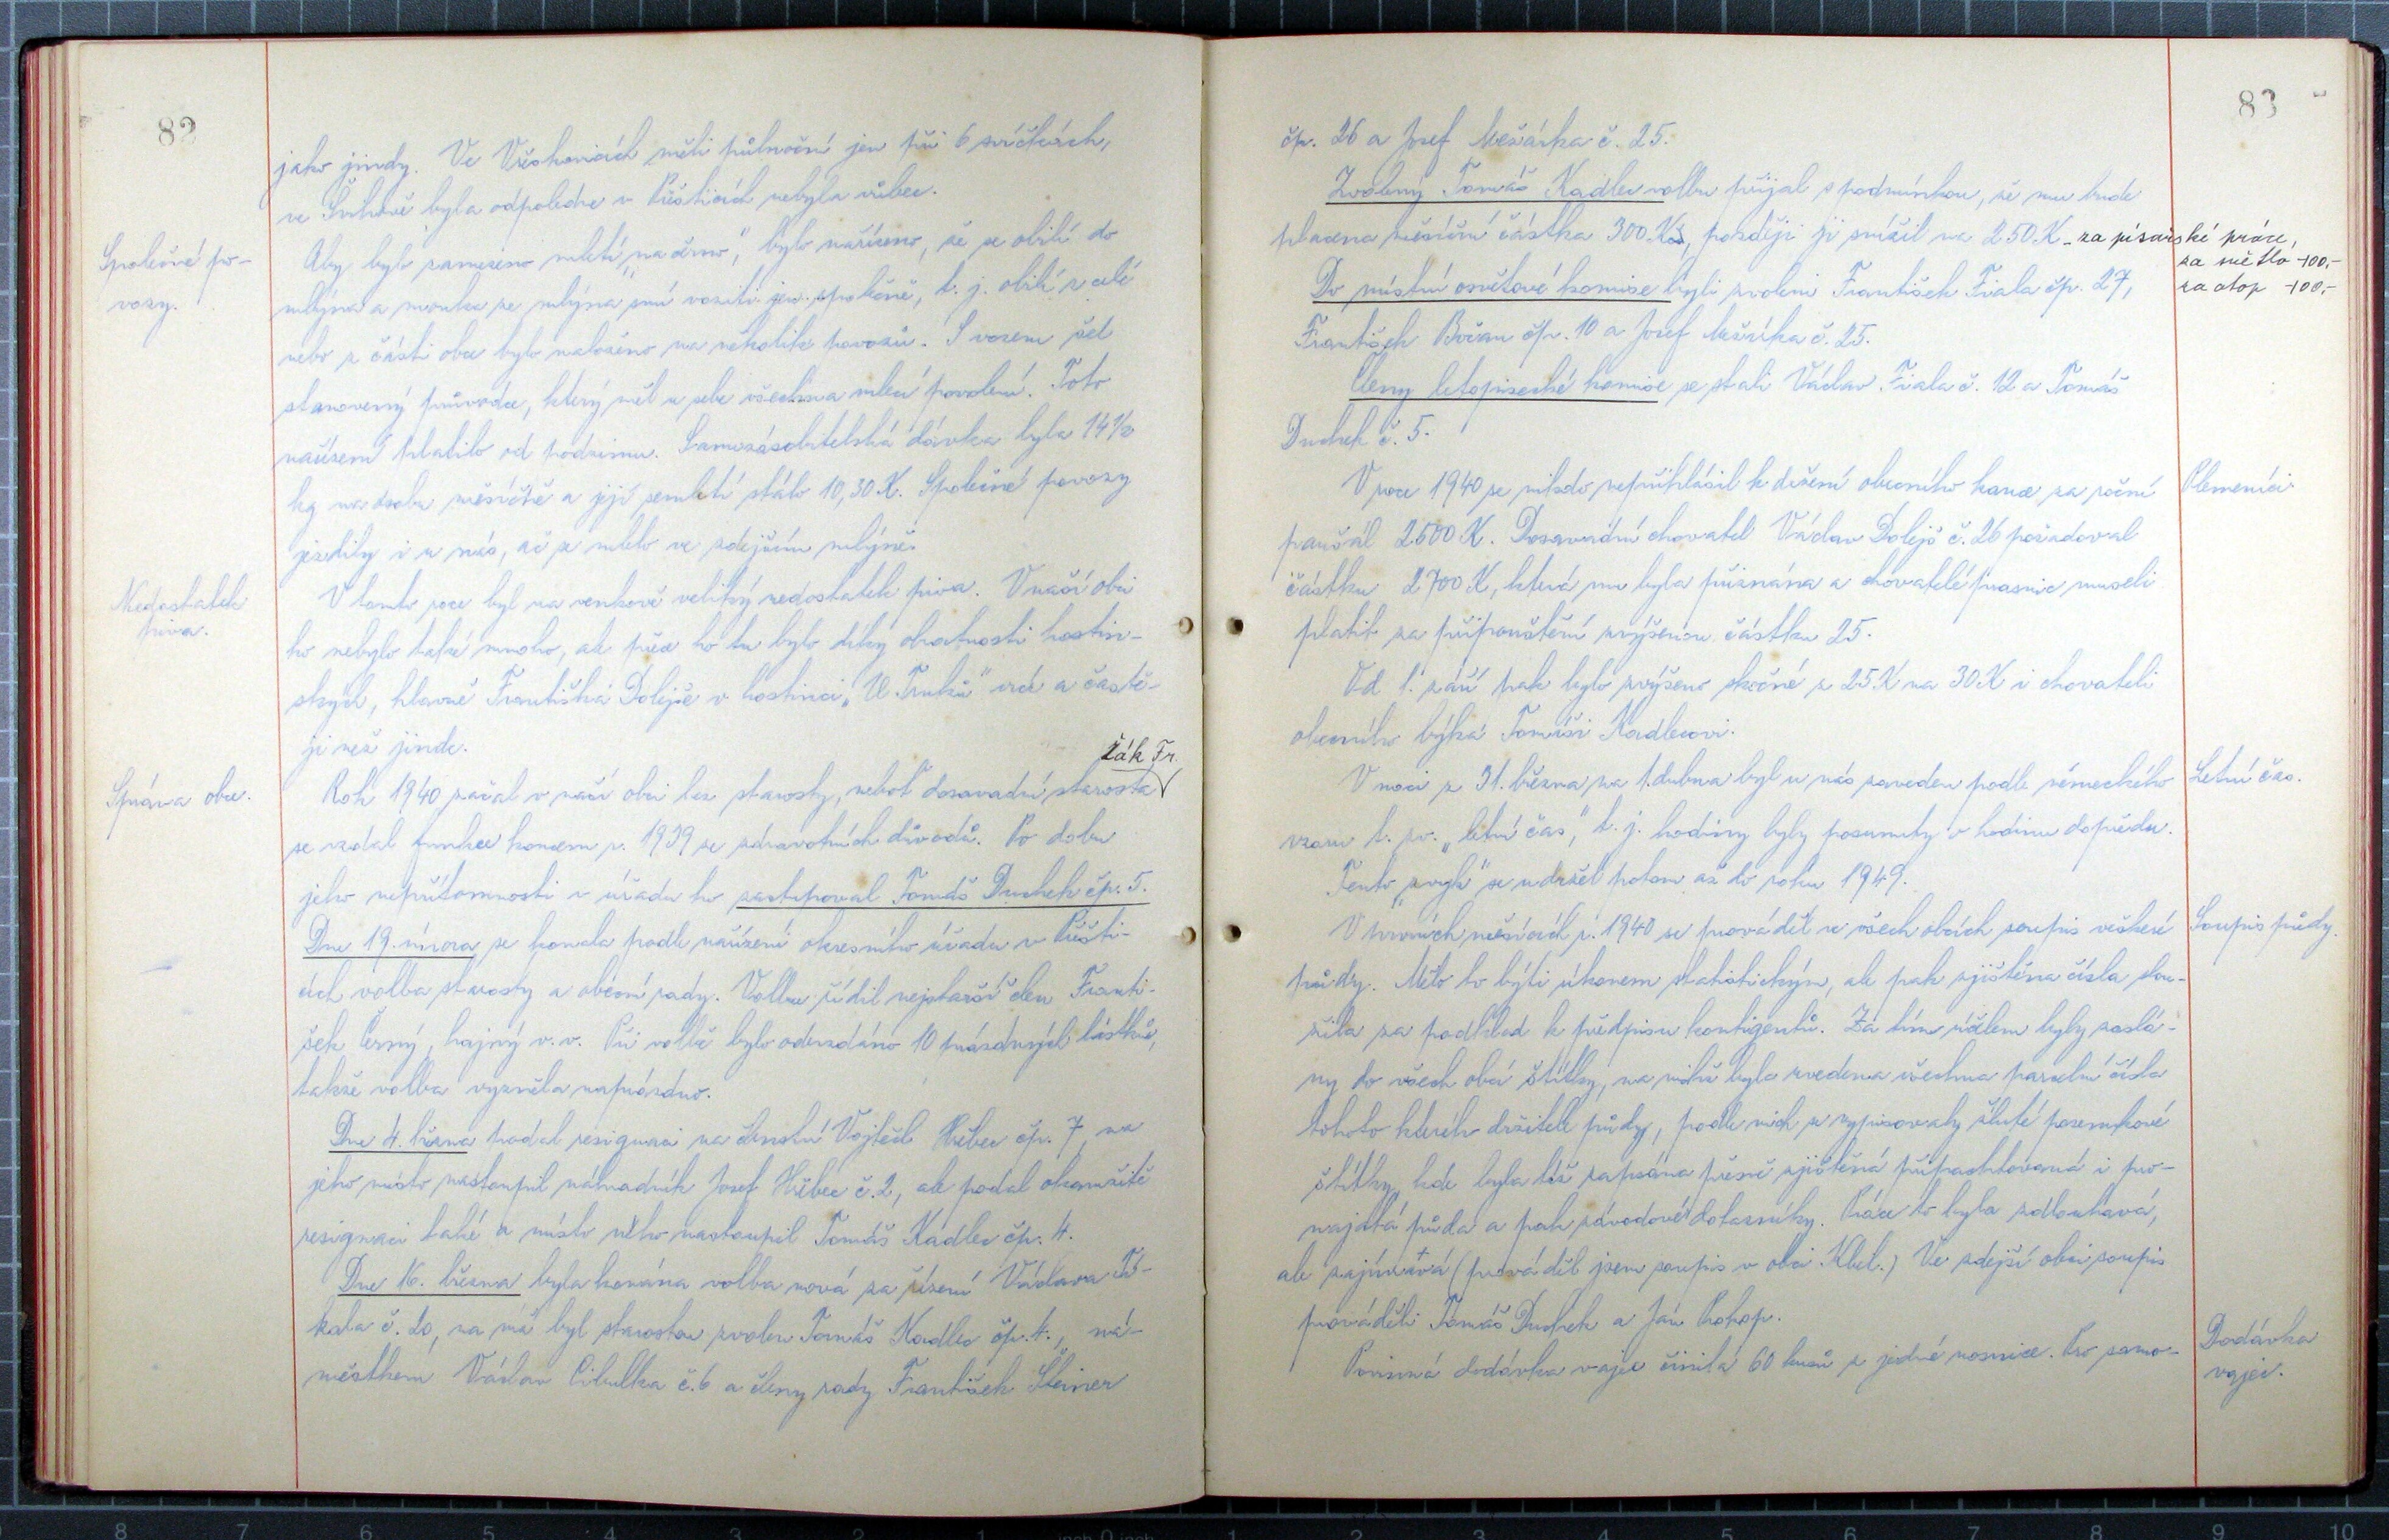 82
jako jindy. Ve Vřeskovicích měli půlnoční jen při 6 svíčkách,
ve Švihově byla odpoledne v Přešticích nebyla vůbec.
Společné po-
vozy.
Aby bylo zamezeno mletí „na černo", bylo nařízeno, že se obilí do
mlýna a mouka ze mlýna smí voziti jen společně, t. j. obilí z celé
nebo z části obce bylo naloženo na několik povozů. S vozem šel
stanovený průvodce, který měl u sebe všechna mlecí povolení. Toto
nařízení platilo od podzimu. Samozásobitelská dávka byla 14½
kg na osobu měsíčně a její semletí stálo 10,30 K. Společné povozy
jezdily i u nás, ač se mlelo ve zdejším mlýně.
Nedostatek
piva.
V tomto roce byl na venkově veliký nedostatek piva. V naší obci
ho nebylo také mnoho, ale přece ho tu bylo díky obratnosti hostin-
ských, hlavně Františka Dolejše v hostinci „U Trnků" více a častě-
ji než jinde.
Žák Fr.
Správa obce.
Rok 1940 začal v naší obci bez starosty, neboť dosavadní starosta
se vzdal funkce koncem r. 1939 ze zdravotních důvodů. Po dobu
jeho nepřítomnosti v úřadu ho zastupoval Tomáš Duchek čp. 5.
Dne 19. února se konala podle nařízení okresního úřadu v Přešti-
cích volba starosty a obecní rady. Volbu řídil nejstarší člen Franti-
šek Černý, hajný v. v. Při volbě bylo odevzdáno 10 prázdných lístků,
takže volba vyzněla naprázdno.
Dne 4. března podal resignaci na členství Vojtěch Hřebec čp. 7, na
jeho místo nastoupil náhradník Josef Hřebec č. 2, ale podal okamžitě
resignaci také a místo něho nastoupil Tomáš Kadlec čp. 4.
Dne 16. března byla konána volba nová za řízení Václava Tr-
kala č. 20, na níž byl starostou zvolen Tomáš Kadlec čp. 4., ná-
městkem Václav Cibulka č. 6 a členy rady František Šteiner
83
čp. 26 a Josef Mežárka č. 25.
Zvolený Tomáš Kadlec volbu přijal s podmínkou, že mu bude
placena měsíční částka 300 Kč, později ji snížil na 250 K - za písařské práce,
za světlo -100,-
za otop -100,-
Do místní osvětové komise byli zvoleni František Fiala čp. 27,
František Bočan čp. 10 a Josef Mežárka č. 25.
Členy letopisecké komise se stali Václav Fiala č. 12 a Tomáš
Duchek č. 5.
Plemeníci.
V roce 1940 se nikdo nepřihlásil k držení obecního kance za roční
paušál 2500 K. Dosavadní chovatel Václav Dolejš č. 26 požadoval
částku 2700 K, která mu byla přiznána a chovatelé prasnic museli
platit za připouštění zvýšenou částku 25.
Od 1. září pak bylo zvýšeno skočné z 25 K na 30 K i chovateli
obecního býka Tomáši Kadlecovi.
Letní čas.
V noci z 31. března na 1. dubna byl u nás zaveden podle německého
vzoru t. zv. „letní čas", t. j. hodiny byly posunuty o hodinu dopředu.
Tento „zvyk" se udržel potom až do roku 1949.
Soupis půdy.
V prvních měsících r. 1940 se prováděl ve všech obcích soupis veškeré
půdy. Mělo to býti úkonem statistickým, ale pak zjištěna čísla slou-
žila za podklad k předpisu kontigentů. Za tím účelem byly zaslá-
ny do všech obcí štítky, na nichž byla uvedena všechna parcelní čísla
tohoto kterého držitele půdy, podle nich se vypisovaly žluté pozemkové
štítky, kde byla též zapsána přesně zjištěná připachtovaná i pro-
najatá půda a pak závodové dotazníky. Práce to byla zdlouhavá,
ale zajímavá (prováděl jsem soupis v obci Kbel.) Ve zdejší obci soupis
prováděli Tomáš Duchek a Jan Prokop.
Dodávka
vajec.
Povinná dodávka vajec činila 60 kusů z jedné nosnice. Pro samo-